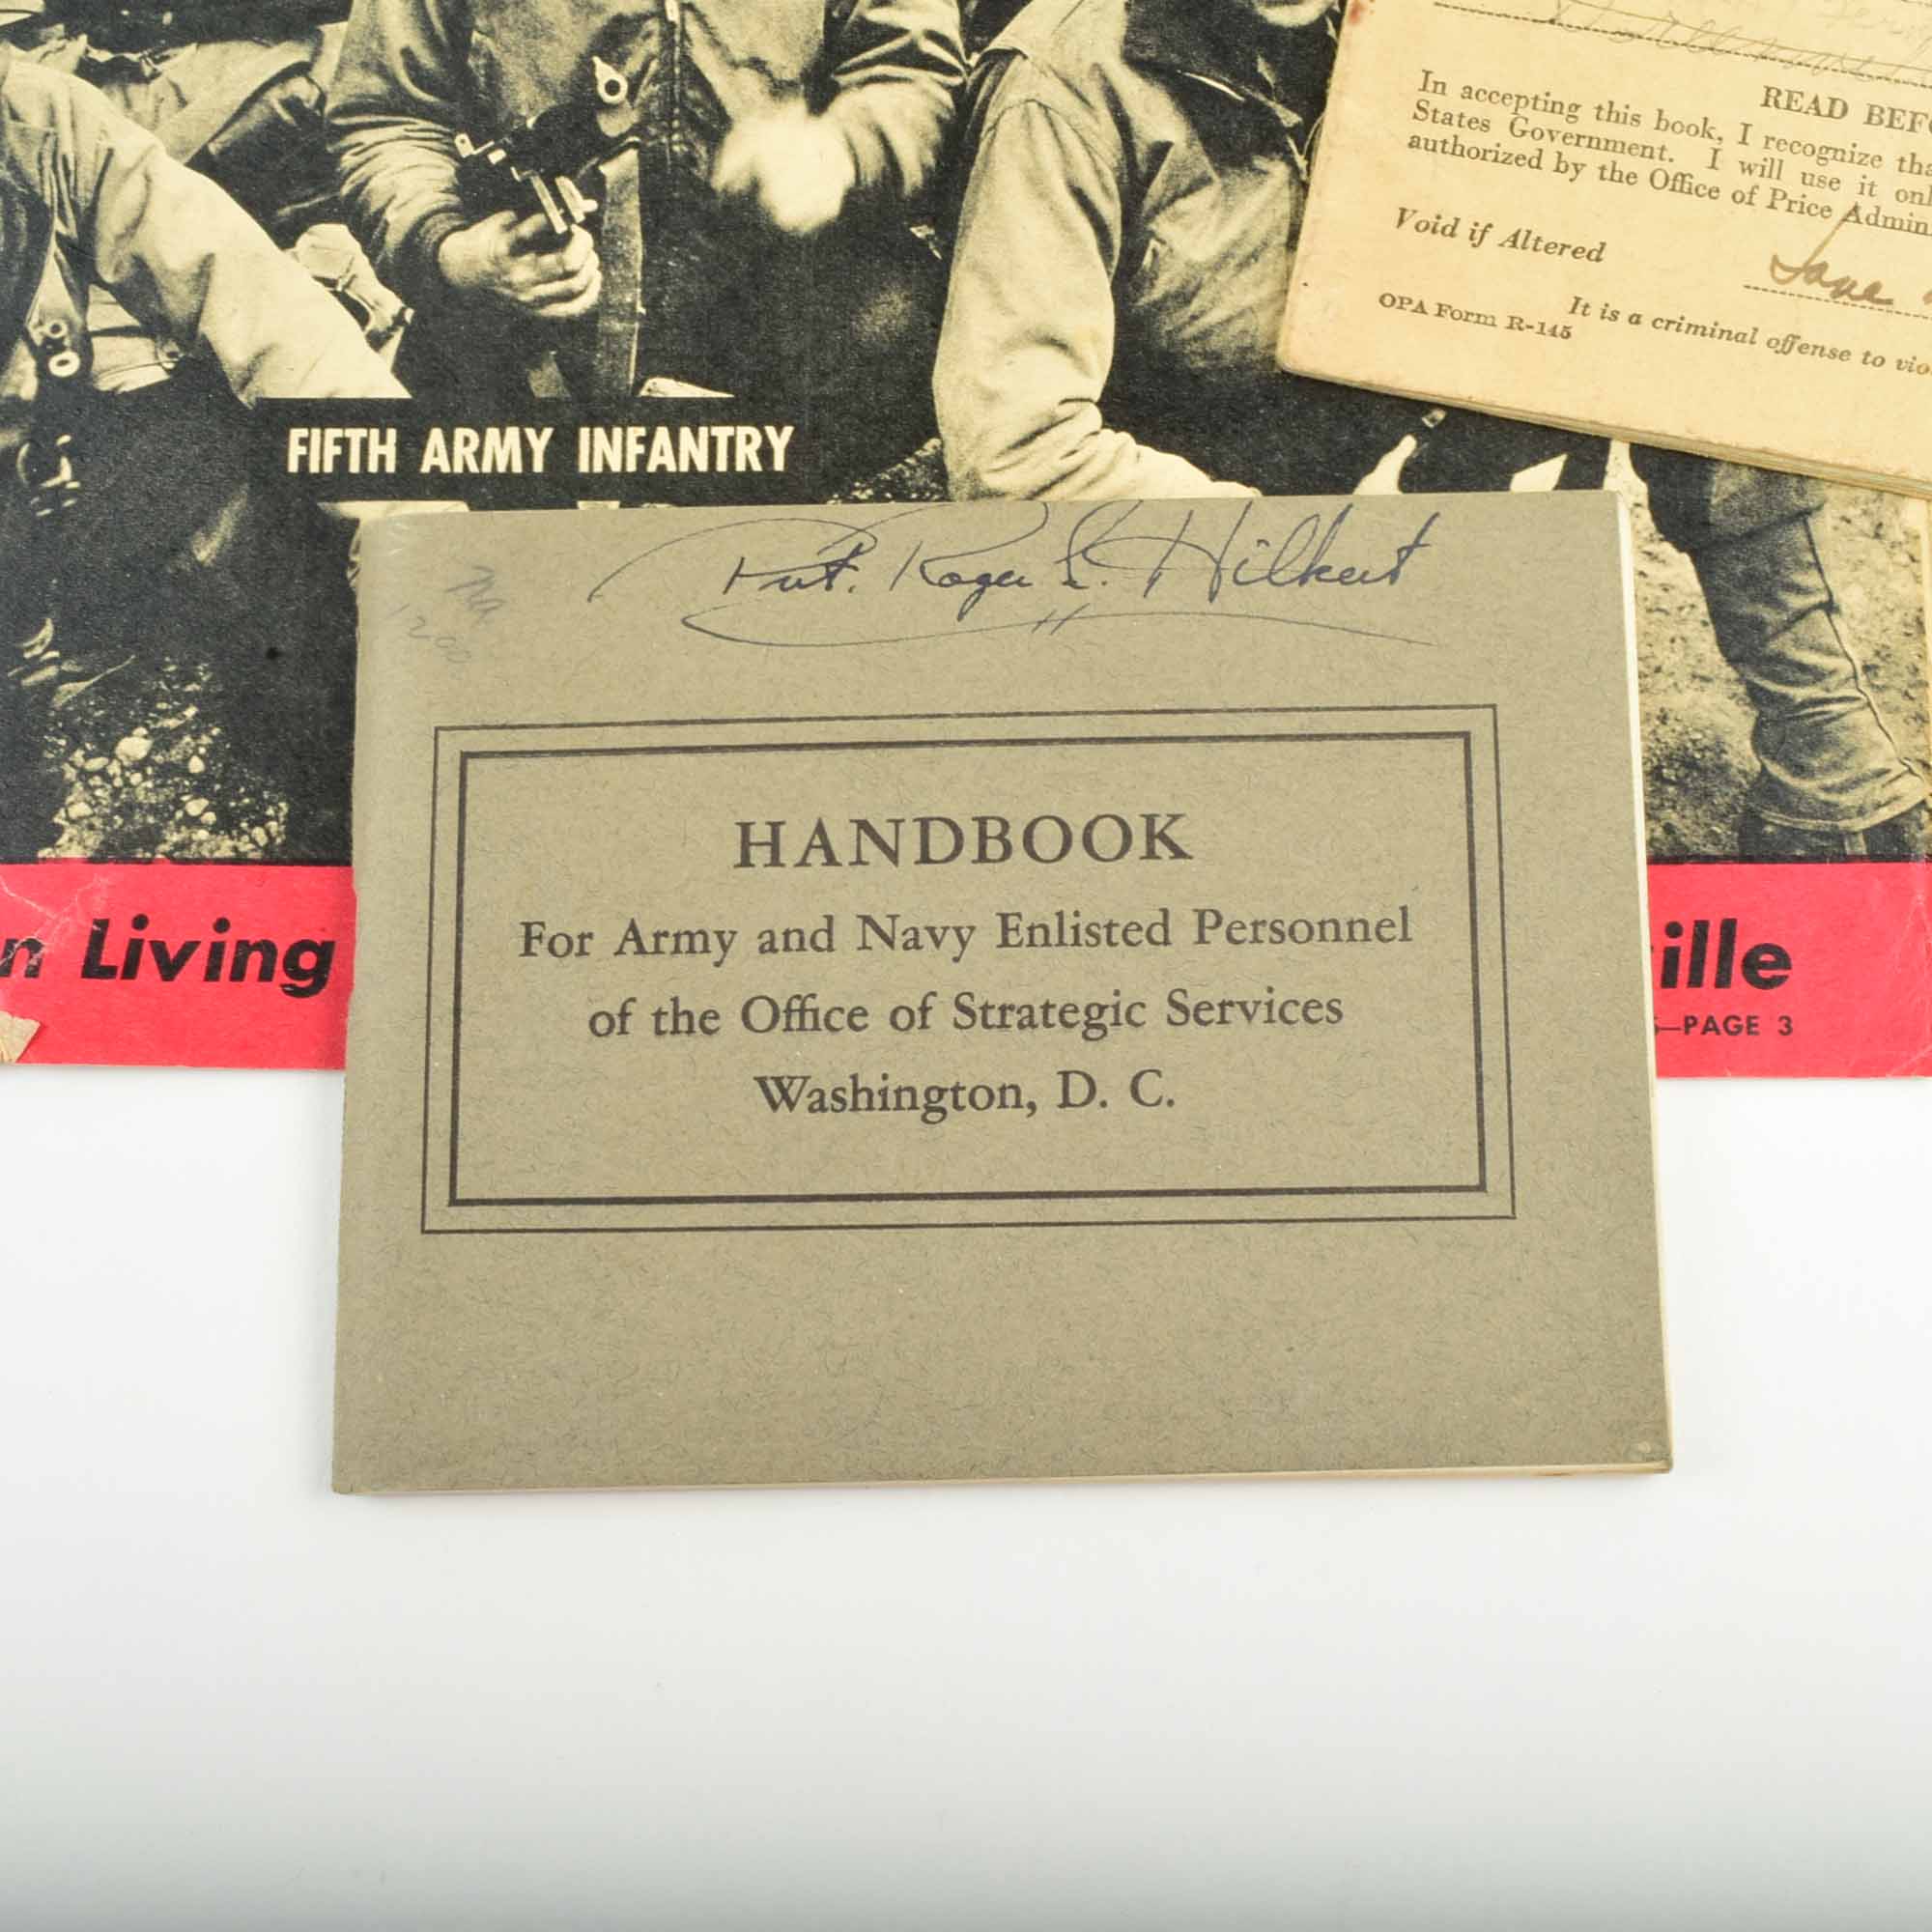 READ BEF
In accepting this book, I recognize tha
States Government. I will use it onl
authorized by the Office of Price Admin
Void if Altered
OPA Form R-145
It is a criminal offense to vio
FIFTH ARMY INFANTRY
Pvt. Roger L. Hilkert
1200
HANDBOOK
For Army and Navy Enlisted Personnel
of the Office of Strategic Services
Washington, D. C.
n Living
ille
—PAGE 3